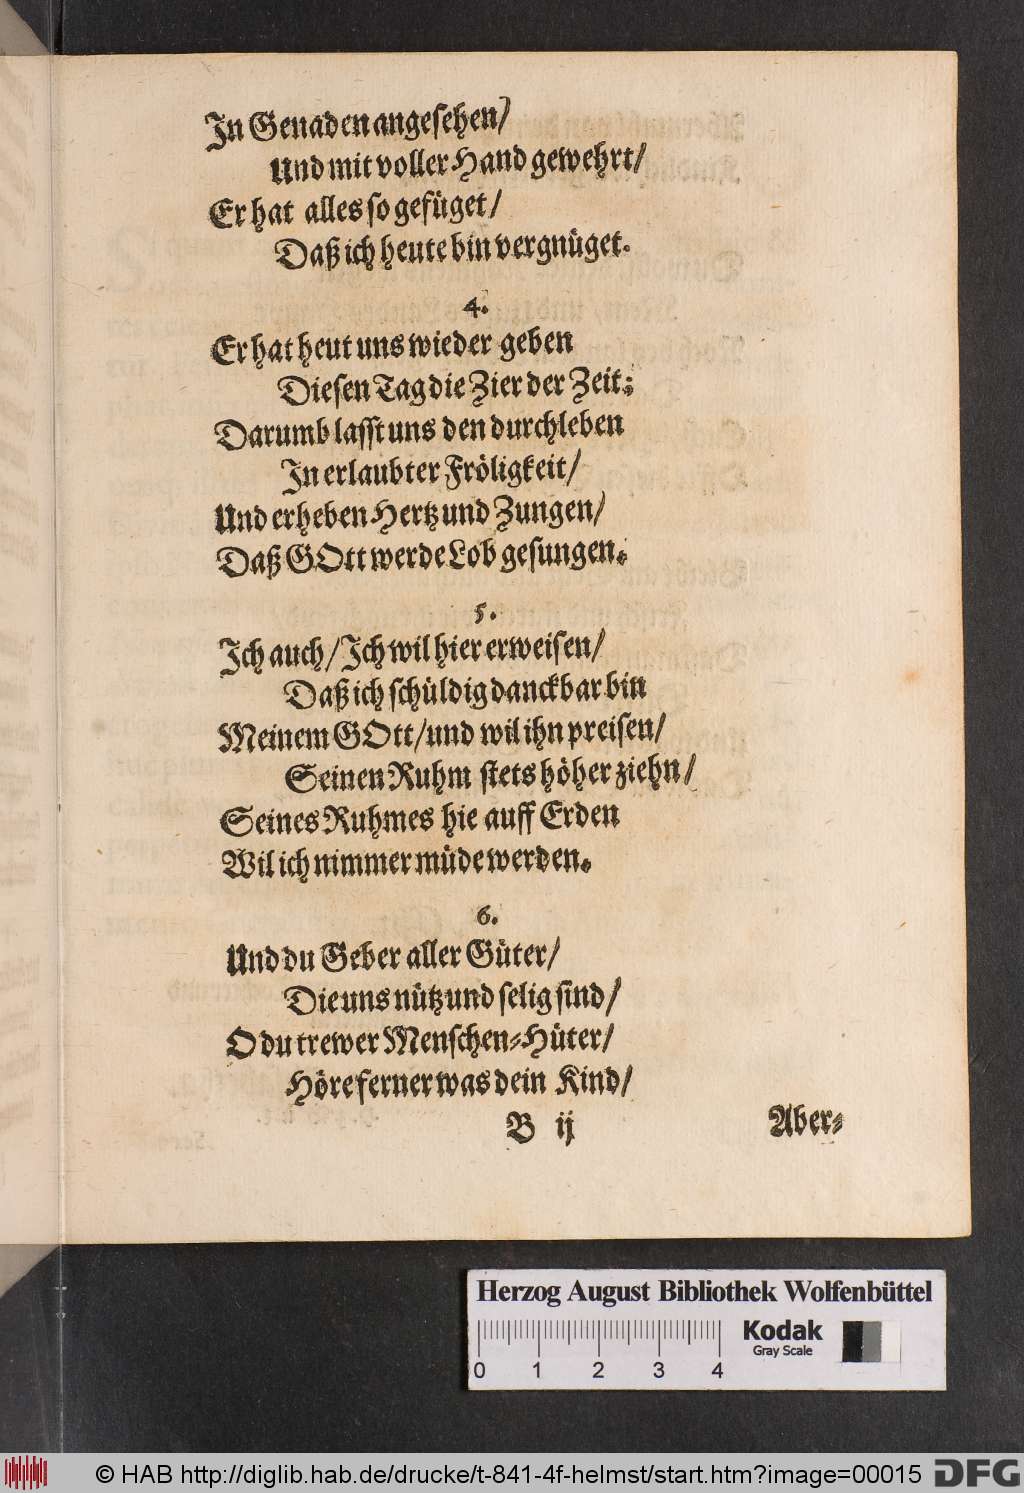 In Genaden angesehen/
Und mit voller Hand gewehrt/
Er hat alles so gefüget/
Daß ich heute bin vergnüget.
4.
Er hat heut uns wieder geben
Diesen Tag die Zier der Zeit;
Darumb lasst uns den durchleben
In erlaubter Fröligkeit/
Und erheben Hertz und Zungen/
Daß GOtt werde Lob gesungen.
5.
Ich auch/ Ich wil hier erweisen/
Daß ich schüldig danckbar bin
Meinem GOtt/ und wil ihn preisen/
Seinen Ruhm stets höher ziehn/
Seines Ruhmes hie auff Erden
Wil ich nimmer müde werden.
6.
Und du Geber aller Güter/
Die uns nütz und selig sind/
O du trewer Menschen-Hüter/
Höre ferner was dein Kind/
B ij
Aber-
Herzog August Bibliothek Wolfenbüttel
Kodak
Gray Scale
0 1 2 3 4
© HAB http://diglib.hab.de/drucke/t-841-4f-helmst/start.htm?image=00015
DFG